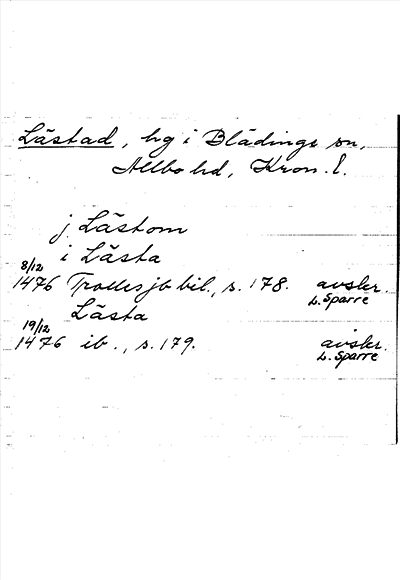 Lästad, hg i Blädinge sn,
Allbo hd, Kron. l.
j Lästom
i Lästa
8/12
1476 Trolles jb bil., s. 178. avskr.
L. Sparre
Lästa
19/12
1476 ib., s. 179. avskr.
L. Sparre